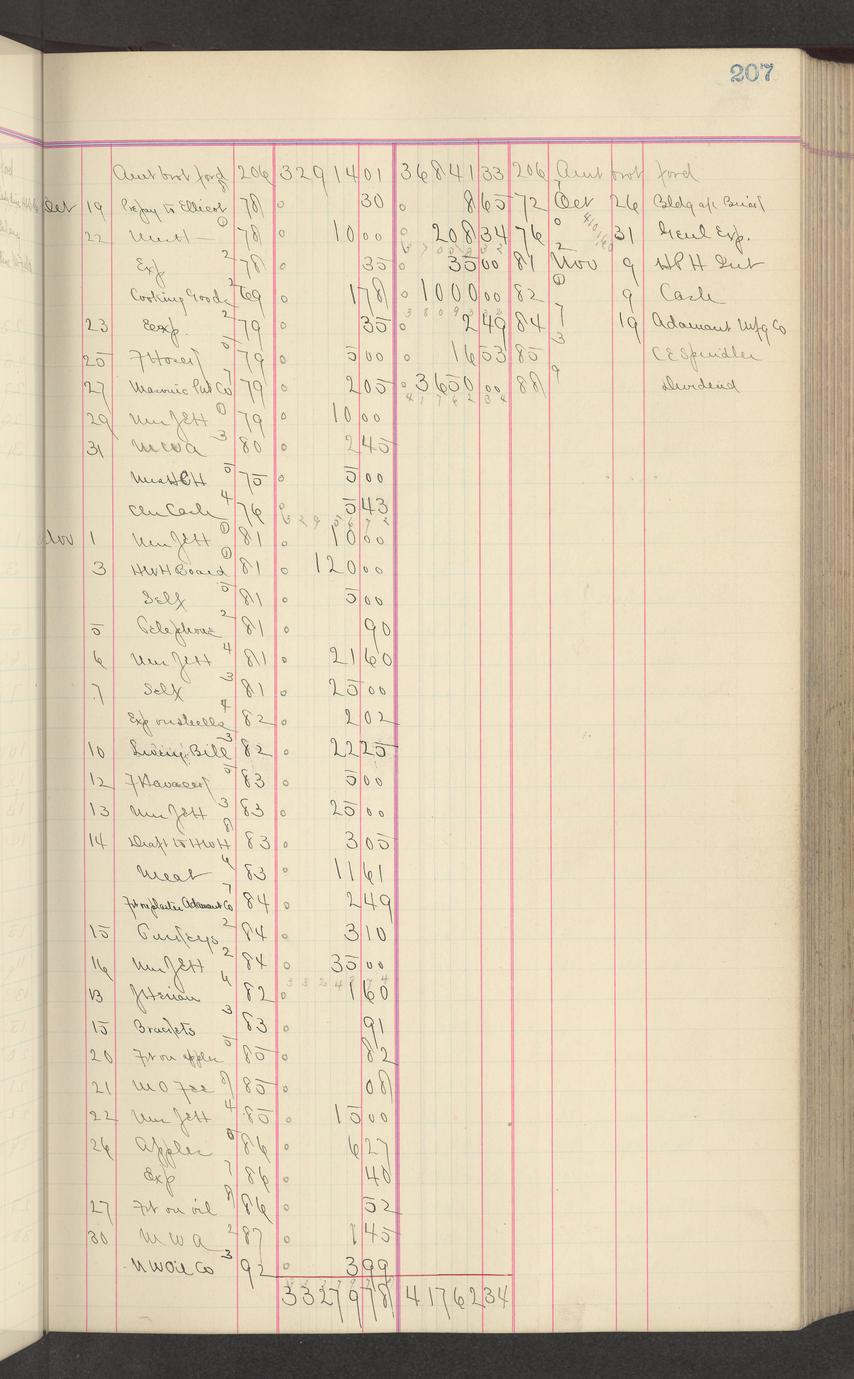 207
Amt brot ford 206 32914 01 36841 33 206 Amt brot ford
Oct 19 78 30 8 65 72 Oct 26 Bldg
22 78 10 00 208 34 76 31 Genl Exp.
Exp 78 35 35 00 81 Nov 9 HPH
Cooking Goods 69 1 78 1000 00 82 9 Cash
23 Exp. 79 35 2 49 84 19 Adamant Mfg Co
25 79 5 00 16 53 85 C E Spindler
27 Masonic Co 79 2 05 3650 00 88 Dividend
29 Mrs JEH 79 10 00
31 M W A 80 2 45
Mrs 75 5 00
Cash 76 5 43
Nov 1 Mrs JEH 81 10 00
3 HWH Board 81 120 00
Self 81 5 00
5 Telephone 81 90
6 Mrs JEH 81 21 60
7 Self 81 25 00
Exp on shells 82 2 02
10 Living Bill 82 22 25
12 83 5 00
13 Mrs JEH 83 25 00
14 Draft to HWH 83 3 05
Meat 83 11 61
Frt on plaster Adamant Co 84 2 49
15 Turkeys 84 3 10
16 Mrs JEH 84 35 00
13 82 1 60
15 Brackets 83 91
20 Frt on apples 85 82
21 M O Fee 85 08
22 Mrs JEH 85 15 00
26 Apples 86 6 27
Exp 86 40
27 Frt on oil 86 52
30 M W A 87 1 45
N W Oil Co 92 3 99
33279 78 41762 34